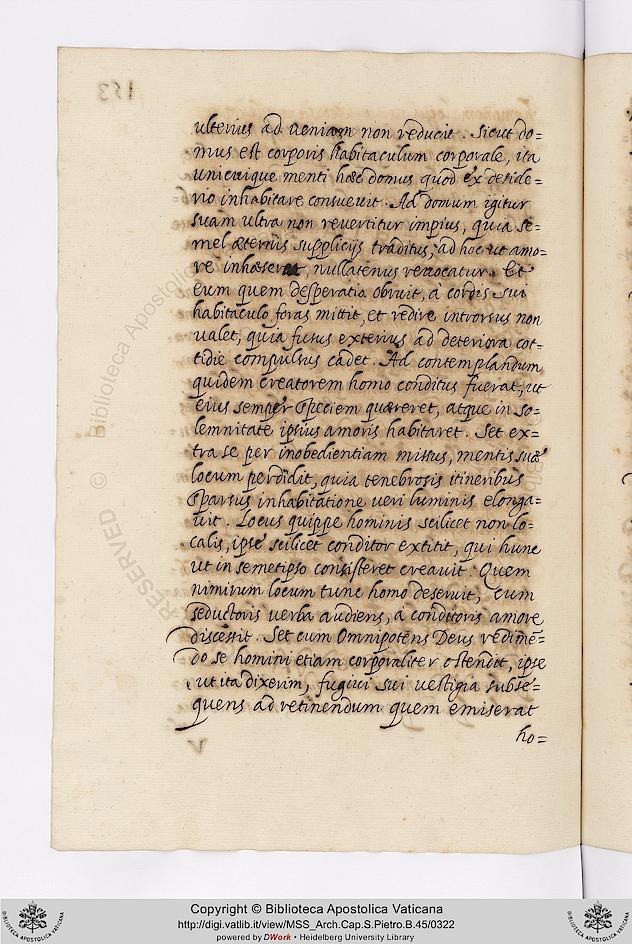 ulterius ad veniam non reducit. Sicut do=
mus est corporis habitaculum corporale, ita
unicuique menti haec domus quod ex deside=
rio inhabitare consuevit. Ad domum igitur
suam ultra non revertitur impius, quia se=
mel æternis supplicijs traditus, ad hoc ut amo=
re inhæserat, nullatenus revocatur. Et
eum quem desperatio obruit, à cordis sui
habitaculo foras mittit, et redire introrsus non
valet, quia fusus exterius ad deteriora cot=
tidie compulsus cadet. Ad contemplandum
quidem creatorem homo conditus fuerat, ut
eius semper speciem quæreret, atque in so=
lemnitate ipsius amoris habitaret. Set ex=
tra se per inobedientiam missus, mentis suæ
locum perdidit, quia tenebrosis itineribus
sparsus inhabitatione veri luminis elonga=
vit. Locus quippe hominis scilicet non lo=
calis, ipse scilicet conditor extitit, qui hunc
ut in semetipso consisteret creavit. Quem
nimirum locum tunc homo deseruit, cum
seductoris verba audiens, a conditoris amore
discessit. Set cum Omnipotens Deus redimē=
do se homini etiam corporaliter ostendit, ipse
ut ita dixerim, fugitivi sui vestigia subse=
quens ad retinendum quem emiserat
ho=
153
© Biblioteca Apostolica
RESERVED
Copyright © Biblioteca Apostolica Vaticana
http://digi.vatlib.it/view/MSS_Arch.Cap.S.Pietro.B.45/0322
powered by DWork • Heidelberg University Library